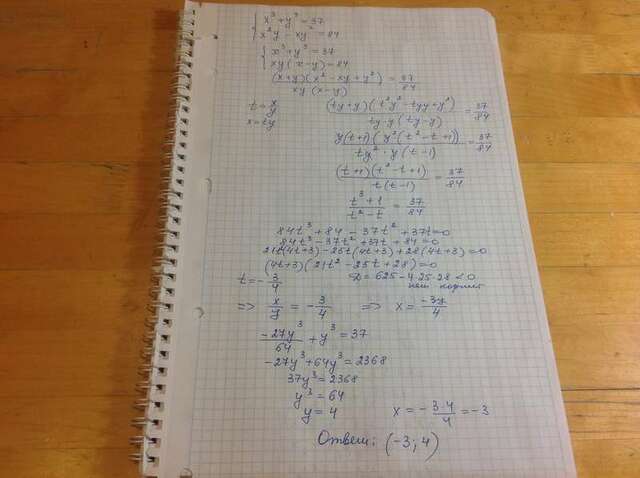 x³ + y³ = 37
x²y - xy² = 84
x³ + y³ = 37
xy (x - y) = 84
(x+y)(x² - xy + y²) / xy (x - y) = 37/84
t = x/y (ty+y)(t²y² - tyy + y²) / ty·y (ty - y) = 37/84
x = ty
y(t+1)(y²(t² - t + 1)) / ty²·y (t - 1) = 37/84
(t+1)(t² - t + 1) / t(t - 1) = 37/84
t³ + 1 / t² - t = 37/84
84t³ + 84 - 37t² + 37t = 0
84t³ - 37t² + 37t + 84 = 0
21t²(4t+3) - 25t(4t+3) + 28(4t+3) = 0
(4t+3)(21t² - 25t + 28) = 0
t = -3/4 D = 625 - 4·25·28 < 0
нет корней
=> x/y = -3/4 => x = -3y/4
-27y³/64 + y³ = 37
-27y³ + 64y³ = 2368
37y³ = 2368
y³ = 64
y = 4 x = -3·4/4 = -3
Ответ: (-3; 4)